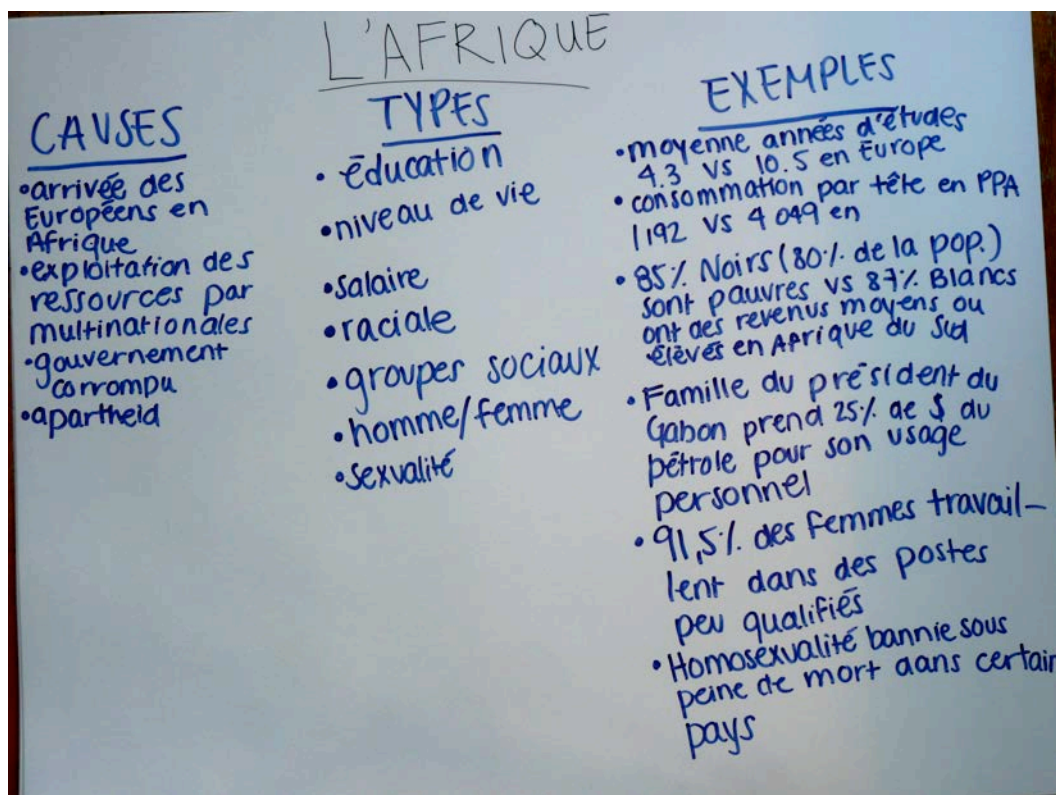 L'AFRIQUE
CAUSES
•arrivée des
Européens en
Afrique
•exploitation des
ressources par
multinationales
•gouvernement
corrompu
•apartheid
TYPES
• éducation
•niveau de vie
•salaire
•raciale
•groupes sociaux
•homme/femme
•sexualité
EXEMPLES
•moyenne années d'études
4.3 vs 10.5 en Europe
•consommation par tête en PPA
1192 vs 4 049 en
• 85% Noirs (80% de la pop.)
sont pauvres vs 87% Blancs
ont des revenus moyens ou
élevés en Afrique du Sud
•Famille du président du
Gabon prend 25% de $ du
pétrole pour son usage
personnel
•91,5% des femmes travail-
lent dans des postes
peu qualifiés
•Homosexualité bannie sous
peine de mort dans certain
pays